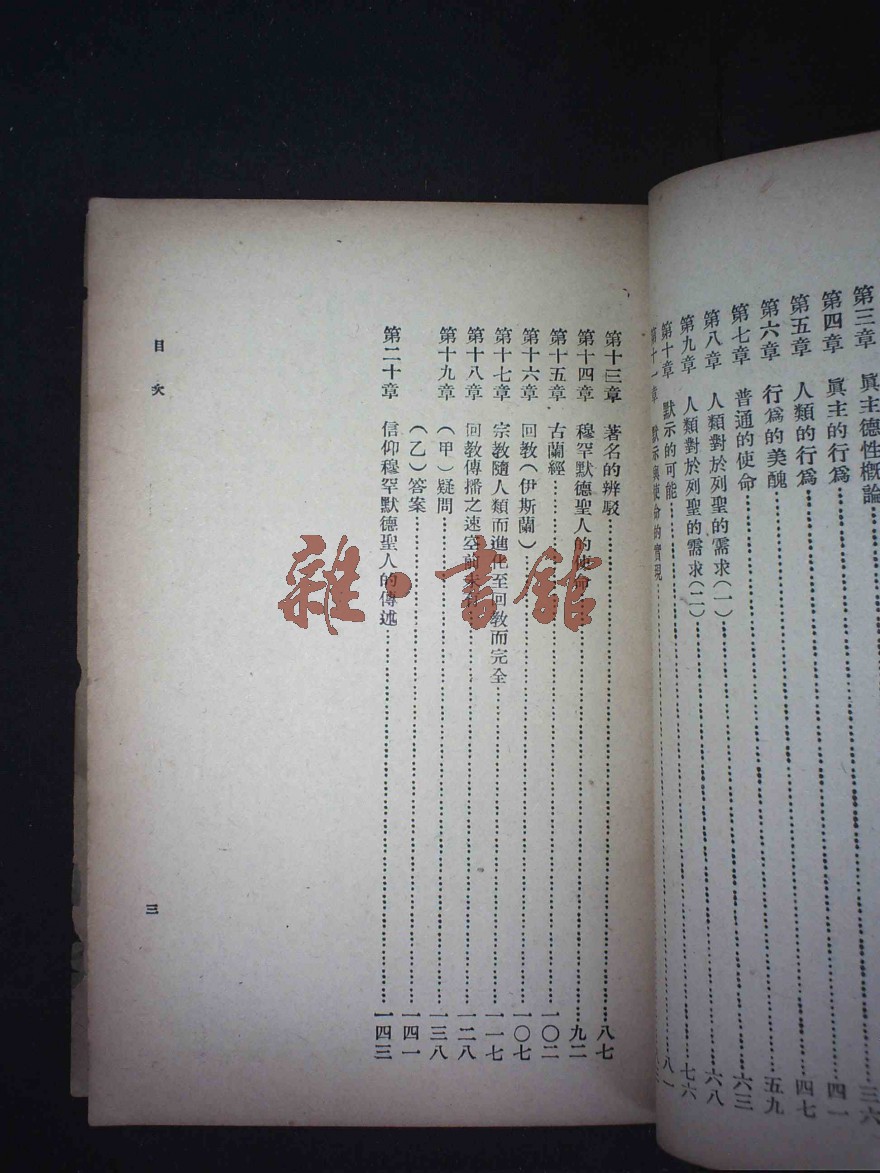 第三章　眞主德性概論……三六
第四章　眞主的行爲……四一
第五章　人類的行爲……四七
第六章　行爲的美醜……五九
第七章　普通的使命……六三
第八章　人類對於列聖的需求(一)……六八
第九章　人類對於列聖的需求(二)……七六
第十章　默示的可能……八一
第十一章　默示與使命的實現……
第十三章　著名的辨駁……八七
第十四章　穆罕默德聖人的使命……九二
第十五章　古蘭經……一〇二
第十六章　回敎(伊斯蘭)……一〇七
第十七章　宗敎隨人類而進化至回敎而完全……一一七
第十八章　回敎傳播之速空前未有……一二八
第十九章　(甲)疑問……一三八
(乙)答案……一四一
第二十章　信仰穆罕默德聖人的傳述……一四三
目次
三
雜·書館